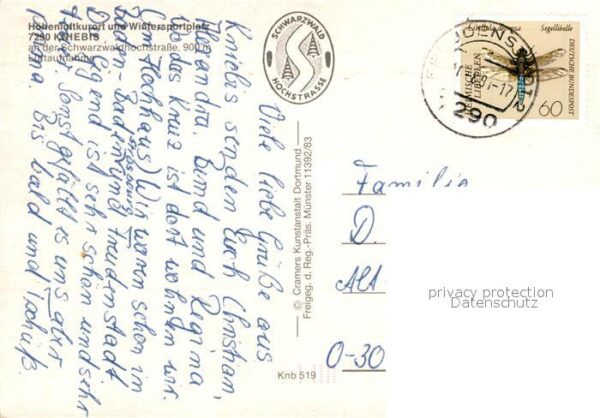 Höhenluftkurort und Wintersportplatz
7290 KNIEBIS
an der Schwarzwaldhochstraße, 900 m
Luftaufnahme
SCHWARZWALD
HOCHSTRASSE
Viele liebe Grüße aus
Kniebis senden Euch Christian,
Alexandra, Bernd und Regina
(wo das Kreuz ist dort wohnten wir.
Hochhaus) Wir waren schon in
Baden-Baden, Straßburg und Freudenstadt
Die Gegend ist sehr schön und sehr
Sonst gefällt es uns aber
Bis bald und Tschüß
© Cramers Kunstanstalt Dortmund
Freigeg. d. Reg.-Präs. Münster 11392/83
Knb 519
Segellibelle
DEUTSCHE BUNDESPOST
LIBELLEN
60
-17
290
Familie
D.
Alt-
O-30
privacy protection
Datenschutz